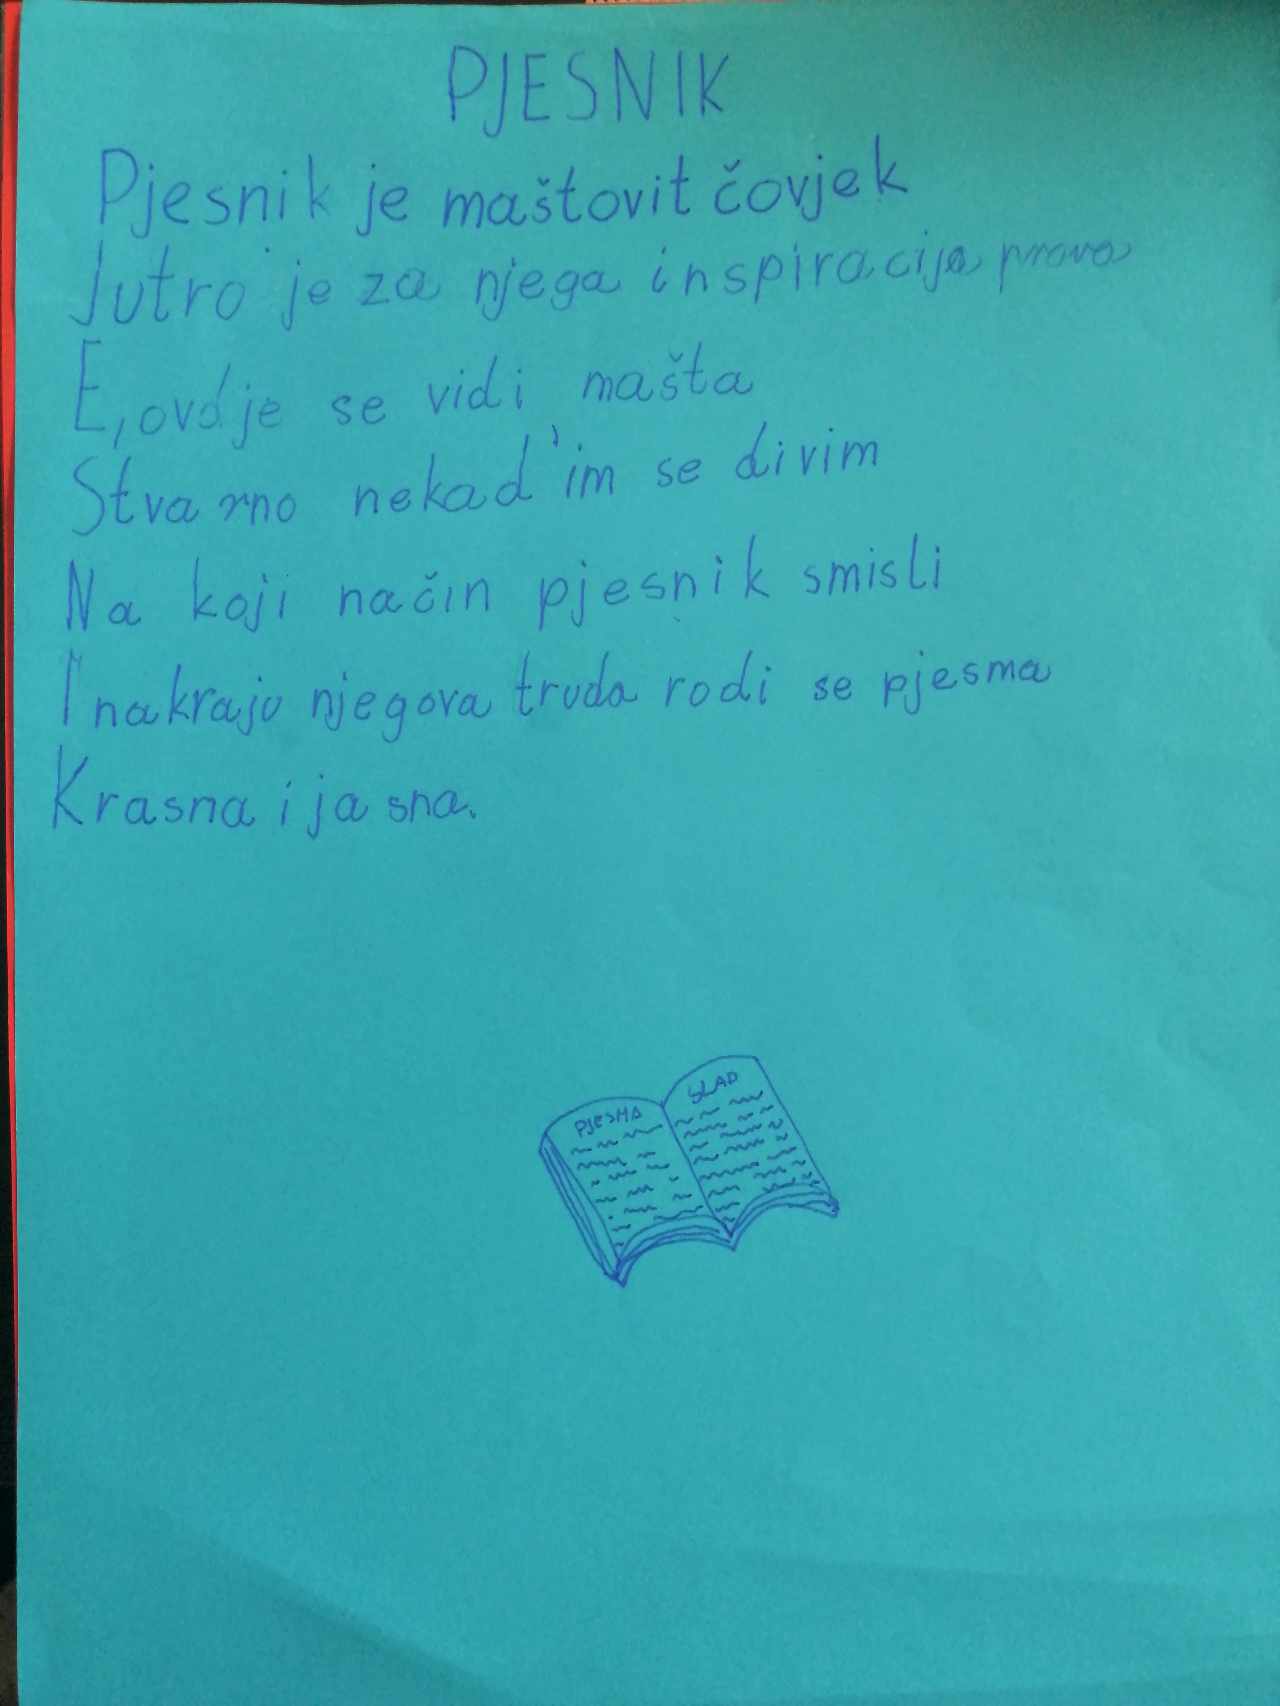 PJESNIK
Pjesnik je maštovit čovjek
Jutro je za njega inspiracija prava
E, ovdje se vidi mašta
Stvarno nekad' im se divim
Na koji način pjesnik smisli
I nakraju njegova truda rodi se pjesma
Krasna i jasna.
PJESMA